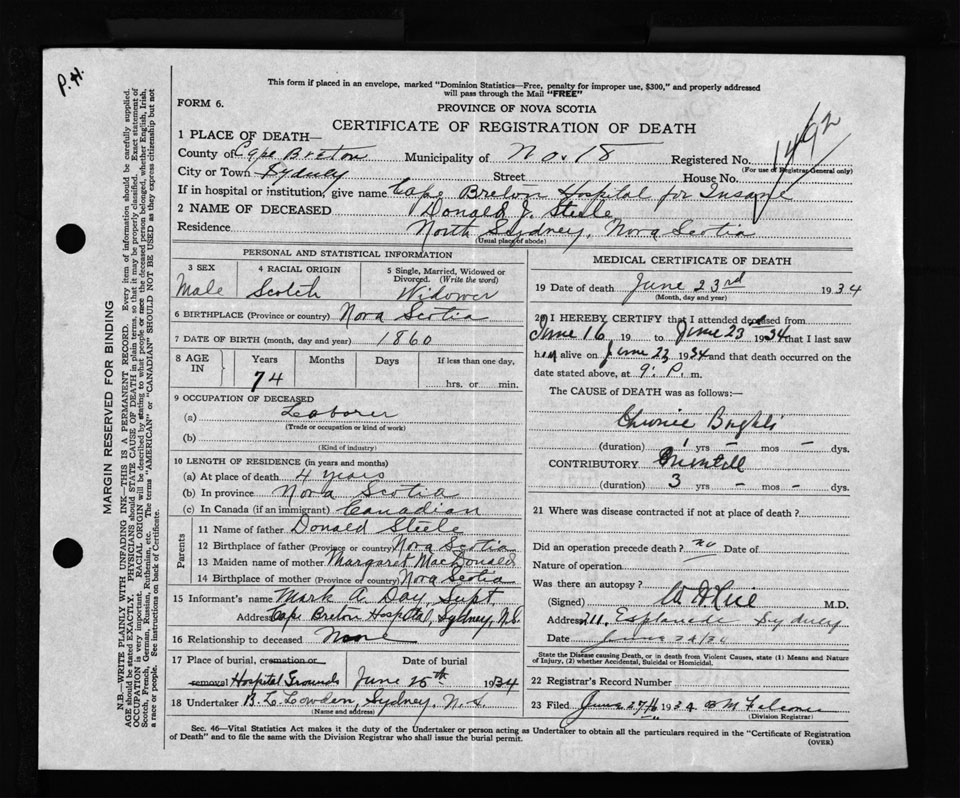 P.H.
This form if placed in an envelope, marked "Dominion Statistics—Free, penalty for improper use, $300," and properly addressed
will pass through the Mail "FREE"
FORM 6.
PROVINCE OF NOVA SCOTIA
CERTIFICATE OF REGISTRATION OF DEATH
1492
1 PLACE OF DEATH—
County of Cape Breton Municipality of No. 18 Registered No.
(For use of Registrar General only)
City or Town Sydney Street House No.
If in hospital or institution, give name Cape Breton Hospital for Insane
2 NAME OF DECEASED Donald J. Steele
Residence North Sydney, Nova Scotia
(Usual place of abode)
PERSONAL AND STATISTICAL INFORMATION
3 SEX 4 RACIAL ORIGIN 5 Single, Married, Widowed or
Divorced. (Write the word)
Male Scotch Widower
6 BIRTHPLACE (Province or country) Nova Scotia
7 DATE OF BIRTH (month, day and year) 1860
8 AGE IN Years Months Days If less than one day,
74 hrs. or min.
9 OCCUPATION OF DECEASED
(a) Laborer
(Trade or occupation or kind of work)
(b)
(Kind of industry)
10 LENGTH OF RESIDENCE (in years and months)
(a) At place of death 4 years
(b) In province Nova Scotia
(c) In Canada (if an immigrant) Canadian
Parents
11 Name of father Donald Steele
12 Birthplace of father (Province or country) Nova Scotia
13 Maiden name of mother Margaret MacDonald
14 Birthplace of mother (Province or country) Nova Scotia
15 Informant's name Mark A. Day, Supt
Address Cape Breton Hospital, Sydney, N.S.
16 Relationship to deceased None
17 Place of burial, cremation or Date of burial
removal Hospital Grounds June 25th 1934
18 Undertaker B. L. Cowden, Sydney, N.S.
(Name and address)
MEDICAL CERTIFICATE OF DEATH
19 Date of death June 23rd 1934
(Month, day and year)
20 I HEREBY CERTIFY that I attended deceased from
June 16 19 to June 23 1934 that I last saw
him alive on June 23 1934 and that death occurred on the
date stated above, at 9. P. m.
The CAUSE OF DEATH was as follows:—
Chronic Brights
(duration) 1 yrs — mos — dys.
CONTRIBUTORY
(duration) 3 yrs — mos. — dys.
21 Where was disease contracted if not at place of death?
Did an operation precede death? no Date of
Nature of operation
Was there an autopsy?
(Signed) M.D.
Address 211 Esplanade Sydney
Date June
State the Disease causing Death, or in death from Violent Causes, state (1) Means and Nature
of Injury, (2) whether Accidental, Suicidal or Homicidal.
22 Registrar's Record Number
23 Filed June 27th 1934
(Division Registrar)
Sec. 46—Vital Statistics Act makes it the duty of the Undertaker or person acting as Undertaker to obtain all the particulars required in the "Certificate of Registration
of Death" and to file the same with the Division Registrar who shall issue the burial permit.
(OVER)
MARGIN RESERVED FOR BINDING
N.B.—WRITE PLAINLY WITH UNFADING INK—THIS IS A PERMANENT RECORD. Every item of information should be carefully supplied.
AGE should be stated EXACTLY. PHYSICIANS should STATE CAUSE OF DEATH in plain terms, so that it may be properly classified. Exact statement of
OCCUPATION is very important. RACIAL ORIGIN will be described by stating to what people or race the deceased person belonged, whether English, Irish,
Scotch, French, German, Russian, Ruthenian, etc. The terms "AMERICAN" or "CANADIAN" SHOULD NOT BE USED as they express citizenship but not
a race or people. See instructions on back of Certificate.